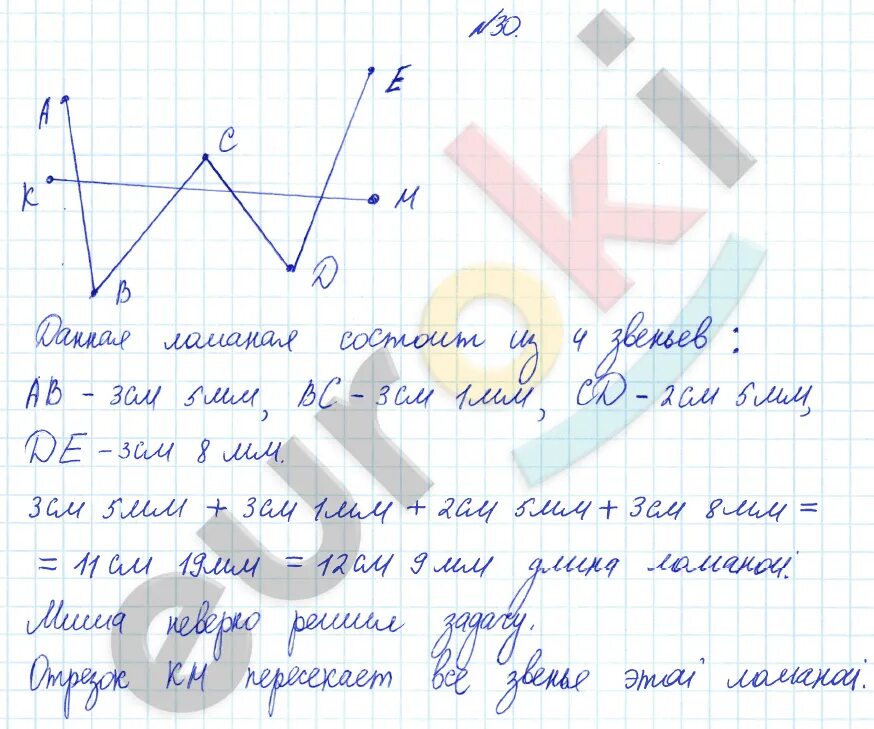 №30.
E
A
C
K
M
B
D
Данная ломаная состоит из 4 звеньев :
AB – 3см 5мм, BC – 3см 1мм, CD – 2см 5мм,
DE – 3см 8 мм.
3см 5мм + 3см 1мм + 2см 5мм + 3см 8мм =
= 11см 19мм = 12см 9мм длина ломаной.
Миша неверно решил задачу.
Отрезок КМ пересекает все звенье этой ломаной.
euroki